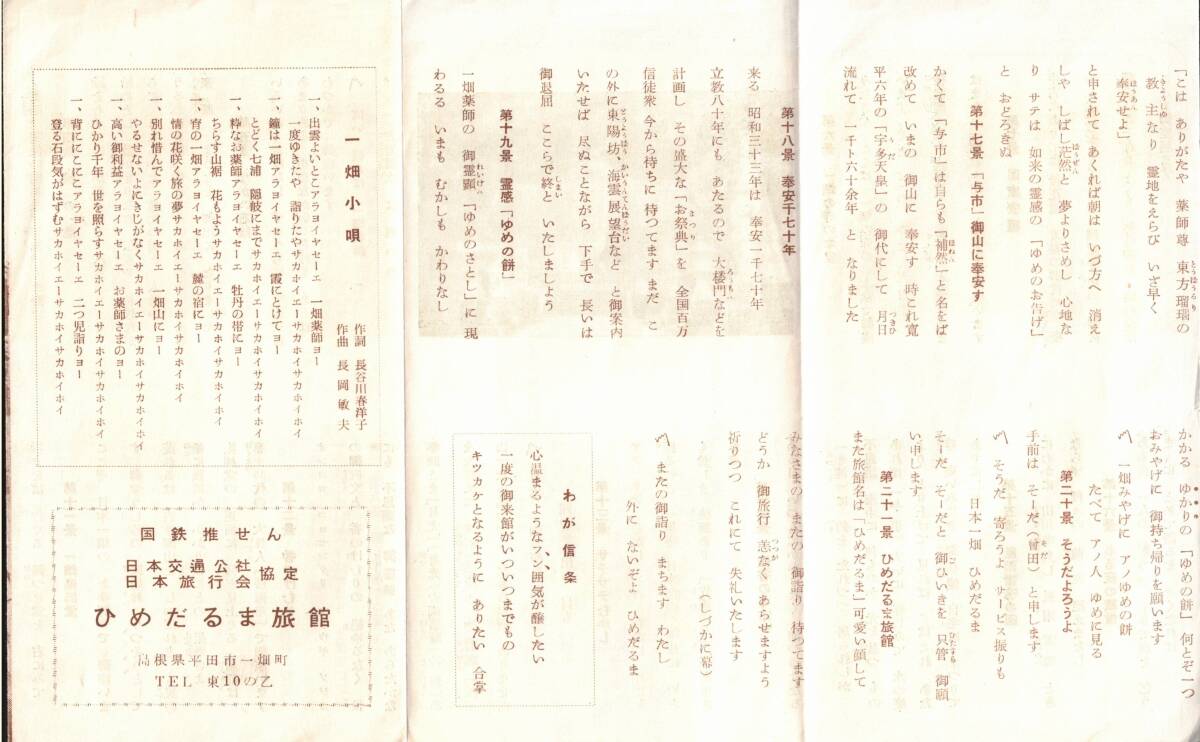 「こは ありがたや 薬師尊 東方瑠璃の
教主なり 霊地をえらび いざ早く
奉安せよ」
と申されて あくれば朝は いづ方へ 消え
しや しばし茫然と 夢よりさめし 心地な
り サテは 如来の霊感の 「ゆめのお告げ」
と おどろきぬ
第十七景 「与市」御山に奉安す
かくて 「与市」は自らも「補然」と名をば
改めて いまの 御山に 奉安す 時これ寛
平六年の「宇多天皇」の 御代にして 月日
流れて 一千ト六十余年 と なりました
第十八景 奉安千七十年
来る 昭和三十三年は 奉安一千七十年
立教八十年にも あたるので 大楼門などを
計画し その盛大な「お祭典」を 全国百万
信徒衆 今から待ちに 待つてます まだ こ
の外に東陽坊、海雲展望台など と御案内
いたせば 尽ぬことながら 下手で 長いは
御退屈 ここらで終と いたしましよう
第十九景 霊感「ゆめの餅」
一畑薬師の 御霊顕「ゆめのさとし」に 現
わるる いまも むかしも かわりなし
かかる ゆかりの「ゆめの餅」何とぞ一つ
おみやげに 御持ち帰りを願います
〽 一畑みやげに アノゆめの餅
たべて アノ人 ゆめに見る
第二十景 そうだよろうよ
手前は そーだ(曾田)と申します
〽 そうだ 寄ろうよ サービス振りも
日本一畑 ひめだるま
そーだ そーだと 御ひいきを 只管 御願
い申します
第二十一景 ひめだるま旅館
また旅館名は「ひめだるま」可愛い顔して
みなさまの またの 御詣り 待つてます
どうか 御旅行 恙なく あらせますよう
祈りつつ これにて 失礼いたします
(しづかに幕)
〽 またの御詣り まちます わたし
外に ないぞよ ひめだるま
わが信条
心温まるようなフン囲気が醸したい
一度の御来館がいついつまでもの
キツカケとなるように ありたい 合掌
一畑小唄
作詞 長谷川春洋子
作曲 長岡敏夫
一、出雲よいとこアラヨイヤセーエ 一畑薬師ョー
一度ゆきたや 詣りたやサカホイエーサカホイサカホイホイ
一、鐘は一畑アラヨイヤセーエ 霞にとけてョー
とどく七浦 隠岐にまでサカホイエーサカホイサカホイホイ
一、粋なお薬師アラヨイヤセーエ 牡丹の帯にョー
ちらす山裾 花もようサカホイエーサカホイサカホイホイ
一、宵の一畑アラヨイヤセーエ 麓の宿にョー
情の花咲く旅の夢サカホイエーサカホイサカホイホイ
一、別れ惜んでアラヨイヤセーエ 一畑山にョー
やるせないよにきじがなくサカホイエーサカホイサカホイホイ
一、高い御利益アラヨイヤセーエ お薬師さまのョー
ひかり千年 世を照らすサカホイエーサカホイサカホイホイ
一、背ににこにこアラヨイヤセーエ 二つ児詣りョー
登る石段気がはずむサカホイエーサカホイサカホイホイ
国鉄推せん
日本交通公社
日本旅行会 協定
ひめだるま旅館
島根県平田市一畑町
TEL 東10の乙